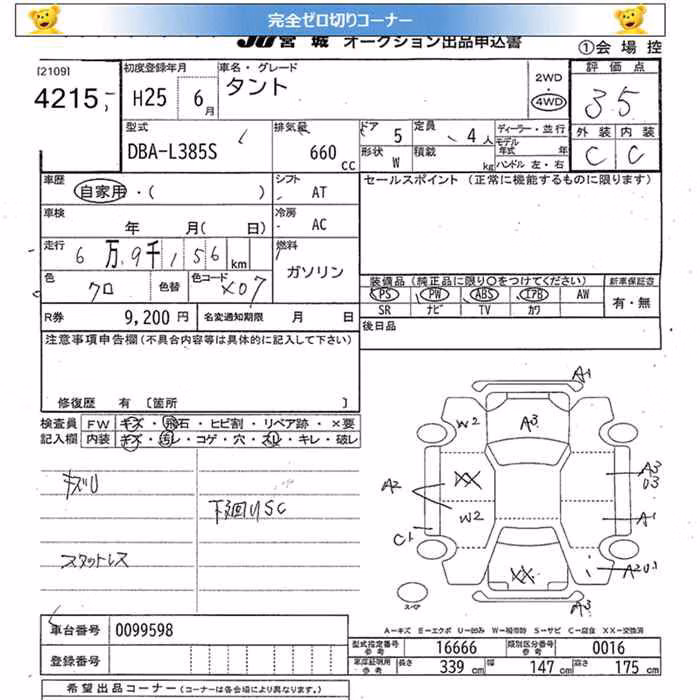 完全ゼロ切りコーナー
JU宮城 オークション出品申込書
①会場控
[2109]
4215
初度登録年月
H25 6月
車名・グレード
タント
2WD
・
4WD
評価点
3.5
外装 内装
C C
型式
DBA-L385S
排気量
660cc
ドア 5
定員 4人
形状 W
積載 kg
ディーラー・並行
モデル年式 年
ハンドル 左・右
車歴
自家用・( )
シフト AT
セールスポイント (正常に機能するものに限ります)
車検 年 月( 日)
冷房 AC
走行 6万9千156km
燃料 ガソリン
色 クロ 色替 色コード X07
装備品(純正品に限り○をつけてください)
PS PW ABS エアB AW
SR ナビ TV カワ
新車保証書
有・無
R券 9,200円
名変通知期限 月 日
後日品
注意事項申告欄(不具合内容等は具体的に記入して下さい)
修復歴 有 〔箇所 〕
検査員記入欄
FW キズ・飛石・ヒビ割・リペア跡・×要
内装 キズ・汚レ・コゲ・穴・スレ・キレ・破レ
キズU
下廻りSC
スタットレス
A1
W2 A3
A2 XX A3
U3
W2 A1
C1
XX A2U1
スペア
A3
A-キズ E-エクボ U-凹み W-補修跡 S-サビ C-腐食 XX-交換済
車台番号 0099598
登録番号
型式指定番号 参考 16666 類別区分番号 参考 0016
車庫証明用 参考 長さ 339cm 幅 147cm 高さ 175cm
希望出品コーナー(コーナーは各会場により異なります。)